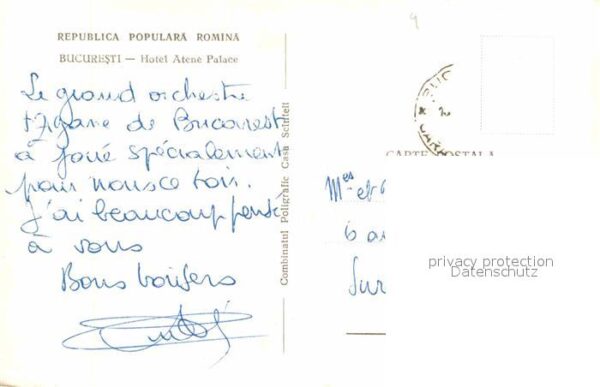 REPUBLICA POPULARĂ ROMÎNĂ
BUCUREŞTI — Hotel Atene Palace
Le grand orchestre
tzigane de Bucarest
a joué spécialement
pour nous ce soir.
J'ai beaucoup pensé
à vous
Bons baisers
Combinatul Poligrafic Casa Scînteii
CARTE POSTALA
Mes et
6 a
Sur
privacy protection
Datenschutz